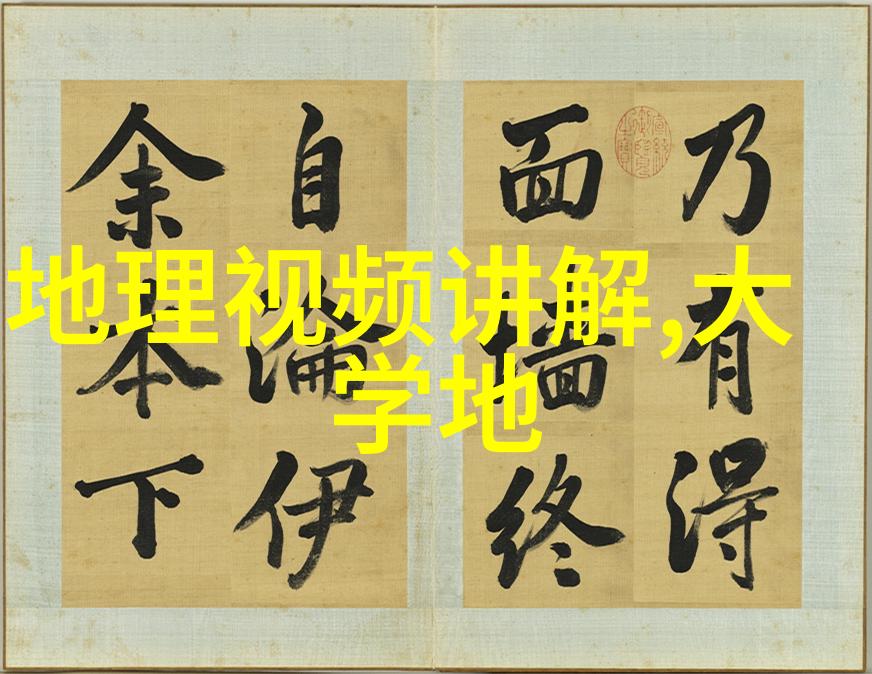 地理视频讲解,大
学地
乃有得
面墻終
自淪伊
余本下